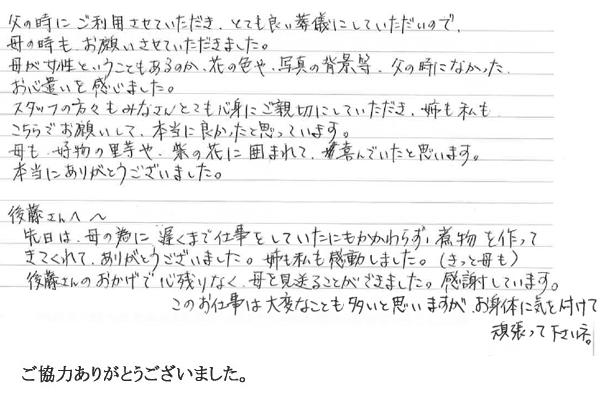 父の時に ご利用させていただき、とても良い葬儀にしていただいので、
母の時も お願いさせていただきました。
母が女性ということもあるのか、花の色や、写真の背景等、父の時になかった
お心遣いを感じました。
スタッフの方々もみなさんとても心身にご親切にしていただき、姉も私も
こちらでお願いして、本当に良かったと思っています。
母も、好物の里芋や、紫の花に囲まれて、喜んでいたと思います。
本当にありがとうございました。
後藤さんへ～
先日は、母の為に 遅くまで仕事をしていたにもかかわらず、煮物を作って
きてくれて、ありがとうございました。姉も私も感動しました。（きっと母も）
後藤さんのおかげで心残りなく、母を見送ることができました。感謝しています。
このお仕事は大変なことも多いと思いますが、お身体に気を付けて
頑張って下さいネ。
ご協力ありがとうございました。